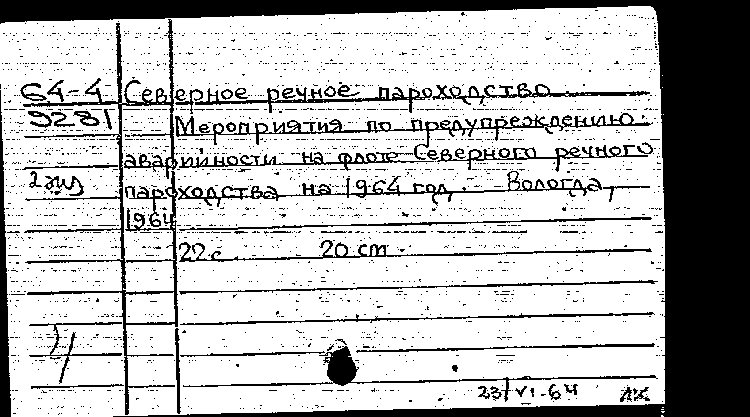 64-4 Северное речное пароходство
9281 Мероприятия по предупреждению
аварийности на флоте Северного речного
2 экз пароходства на 1964 год. Вологда,
1964
22 с 20 cm.
23/VI-64